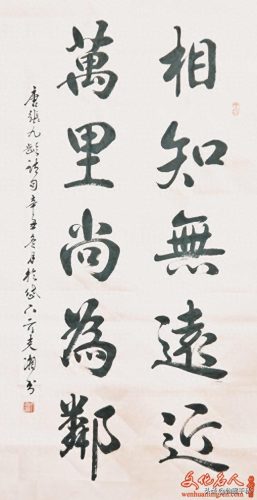 相知無遠近
萬里尚為鄰
唐張九齡詩句辛丑冬月於
文化名人
wenhuamingren.com